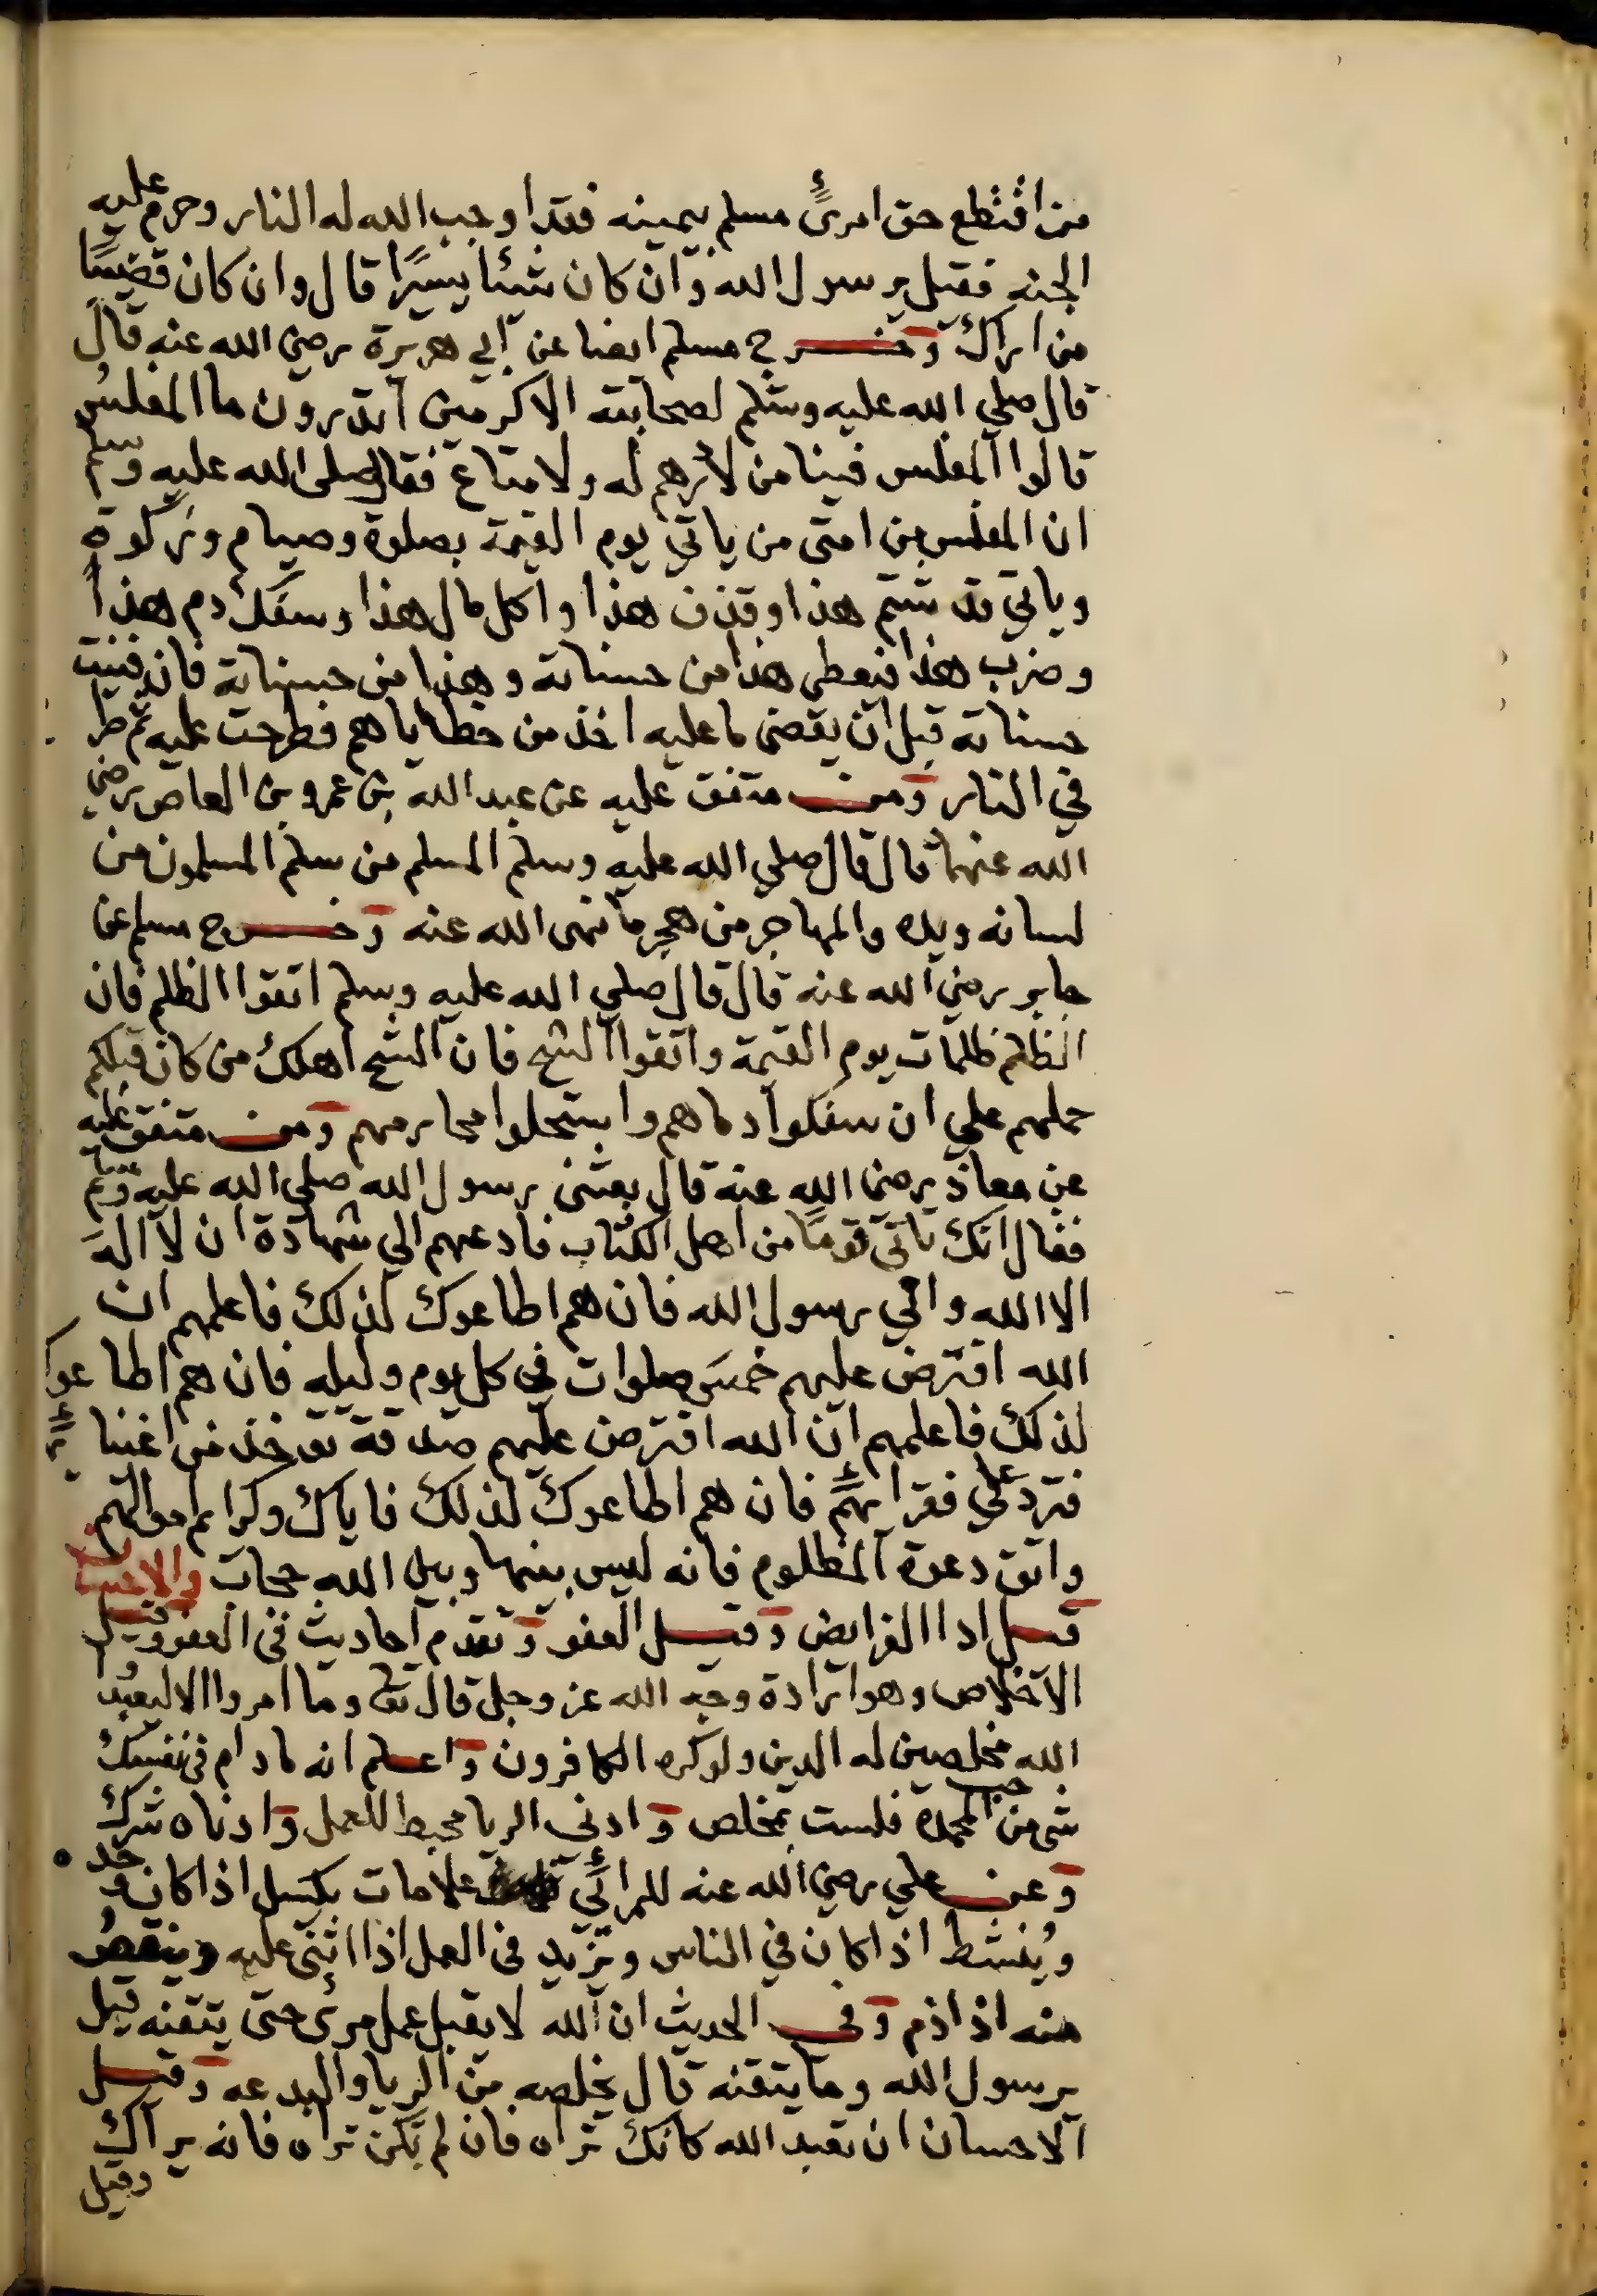 من اقتطع حق امرئ مسلم بيمينه فقد اوجب الله له النار وحرم عليه
الجنه فقيل يرسول الله وان كان شيئا يسيرا قال وان كان قضيبا
من اراك وخرج مسلم ايضا عن ابي هريرة رضي الله عنه قال
قال صلي الله عليه وسلم لصحابته الاكرمين اتدرون ما المفلس
قالوا المفلس فينا من لا درهم له ولا متاع فقال صلى الله عليه وسلم
ان المفلس من امتى من ياتي يوم القيمة بصلوة وصيام وزكوة
وياتي قد شتم هذا وقذف هذا واكل مال هذا وسفك دم هذا
وضرب هذا فيعطى هذا من حسناته وهذا من حسناته فان فنيت
حسناته قبل ان يقضى ما عليه اخذ من خطاياهم فطرحت عليه ثم طر
في النار ومن متفق عليه عن عبد الله بن عمرو بن العاص رضي
الله عنهما قال قال صلي الله عليه وسلم المسلم من سلم المسلمون من
لسانه ويده والمهاجر من هجر ما نهى الله عنه وخرج مسلم عن
جابر رضي الله عنه قال قال صلي الله عليه وسلم اتقوا الظلم فان
الظلم ظلمات يوم القيمة واتقوا الشح فان الشح اهلك من كان قبلكم
حملهم علي ان سفكوا دماهم واستحلوا محارمهم ومن متفق عليه
عن معاذ رضي الله عنه قال بعثنى رسول الله صلي الله عليه وسلم
فقال انك تاتي قوما من اهل الكتاب فادعهم الي شهادة ان لا اله
الا الله واني رسول الله فان هم اطاعوك لذلك فاعلمهم ان
الله افترض عليهم خمس صلوات في كل يوم وليله فان هم اطاعوك
لذلك فاعلمهم ان الله افترض عليهم صدقة توخذ من اغنيا ئهم
فترد علي فقرائهم فان هم اطاعوك لذلك فاياك وكرايم اموالهم
واتق دعوة المظلوم فانه ليس بينها وبين الله حجاب والاحسان
قيل ادا الفرايض وقيل العفو وتقدم احاديث في العفو وقيل
الاخلاص وهو ارادة وجه الله عز وجل قال تعا وما امروا الا ليعبدوا
الله مخلصين له الدين ولو كره الكافرون واعلم انه مادام في نفسك
شي من حب المحمدة فلست بمخلص وادنى الريا محبط للعمل وادناه شرك
وعن علي رضي الله عنه للمرائي علامات يكسل اذا كان وحده
وينشط اذا كان في الناس ويزيد في العمل اذا اثنى عليه وينقص
منه اذا ذم وفي الحديث ان الله لا يقبل عمل امرئ حتى يتقنه قيل
يرسول الله وما يتقنه قال يخلصه من الريا والبدعه وقيل
الاحسان ان تعبد الله كانك تراه فان لم تكن تراه فانه يراك
وقيل